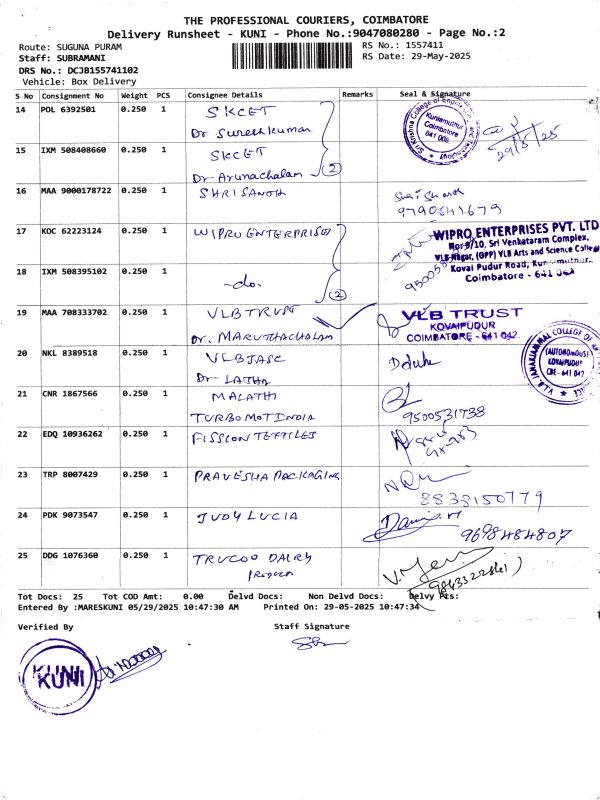 THE PROFESSIONAL COURIERS, COIMBATORE
Delivery Runsheet - KUNI - Phone No.:9047080280 - Page No.:2
Route: SUGUNA PURAM
RS No.: 1557411
Staff: SUBRAMANI
RS Date: 29-May-2025
DRS No.: DCJB155741102
Vehicle: Box Delivery
S No Consignment No Weight PCS Consignee Details Remarks Seal & Signature
14 POL 6392501 0.250 1 SKCET
Dr Sureshkumar
Sri Krishna College of Engineering and Technology
Kuniamuthur
Coimbatore
641 008
29/5/25
15 IXM 508408660 0.250 1 SKCET
Dr Arunachalam (2)
16 MAA 9000178722 0.250 1 SHRISANTH
9790541679
17 KOC 62223124 0.250 1 WIPRO ENTERPRISES
WIPRO ENTERPRISES PVT. LTD
Nor 9/10, Sri Venkataram Complex,
VLB Nagar, (OPP) VLB Arts and Science College
Kovai Pudur Road, Kuniamuthur,
Coimbatore - 641 042
18 IXM 508395102 0.250 1 -do- (2)
19 MAA 708333702 0.250 1 VLB TRUST
Dr. MARUTHACHALAM
VLB TRUST
KOVAIPUDUR
COIMBATORE - 641 042
20 NKL 8389518 0.250 1 VLBJASC
Dr LATHA
V.L.B. JANAKIAMMAL COLLEGE OF
(AUTONOMOUS)
KOVAIPUDUR
CBE - 641 042
21 CNR 1867566 0.250 1 MALATHI
TURBOMOT INDIA
9500531738
22 EDQ 10936262 0.250 1 FISSION TEXTILES
23 TRP 8007429 0.250 1 PRAVESHA PACKAGING
8833150779
24 PDK 9073547 0.250 1 JUDY LUCIA
9698484807
25 DDG 1076360 0.250 1 TRUCOO DAIRY
PRODUCT
Tot Docs: 25 Tot COD Amt: 0.00 Delvd Docs: Non Delvd Docs: Delvy Pts:
Entered By :MARESKUNI 05/29/2025 10:47:30 AM Printed On: 29-05-2025 10:47:34
Verified By Staff Signature
KUNI